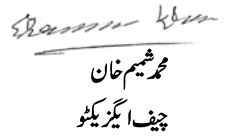 محمد شمیم خان
چیف ایگزیکٹو